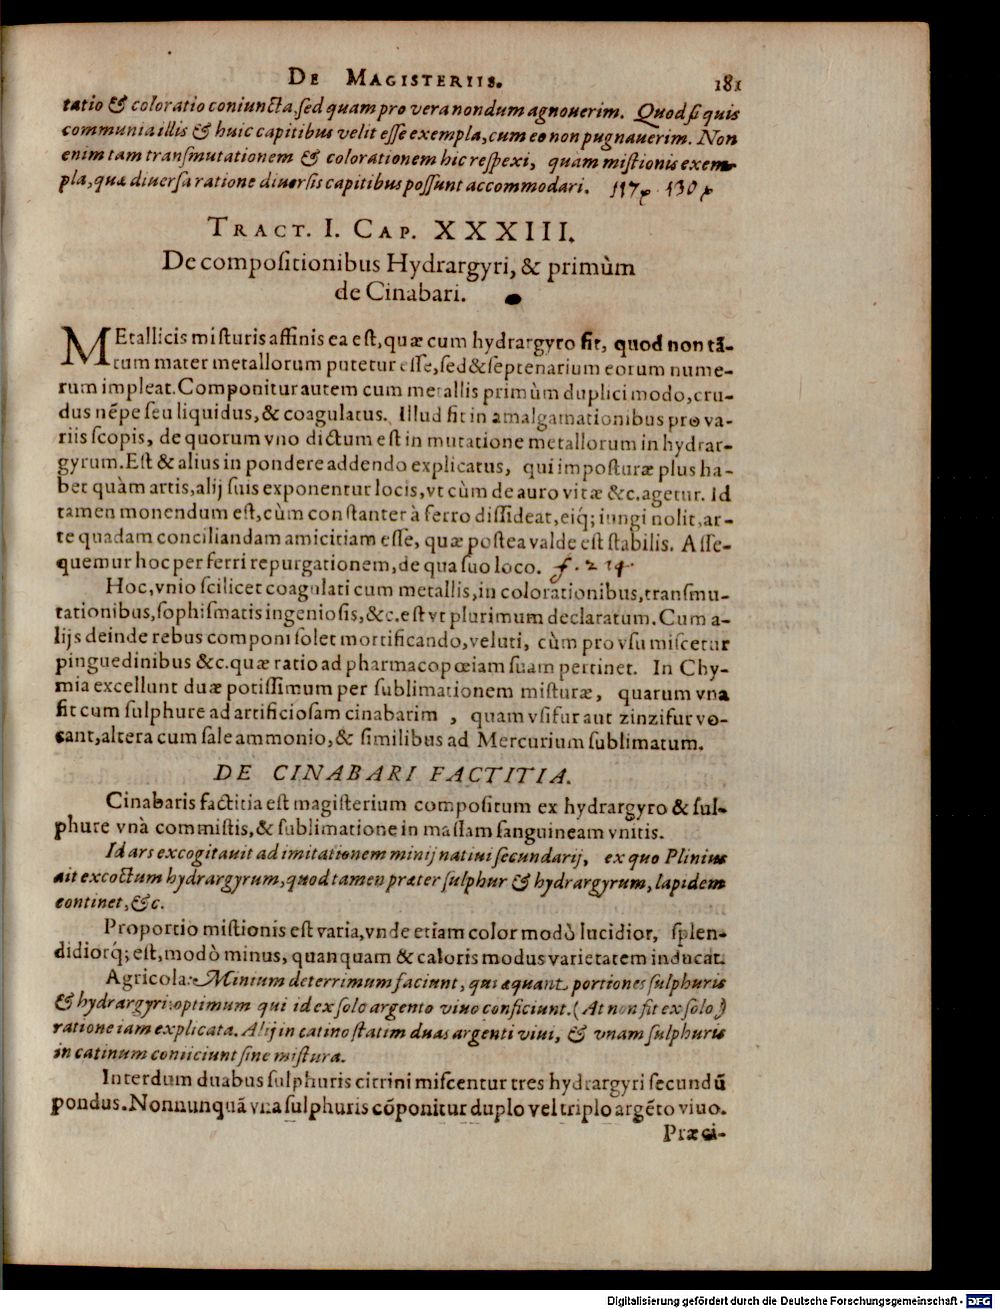 De Magisteriis. 181
tatio & coloratio coniuncta, sed quam pro vera nondum agnouerim. Quod si quis
communia illis & huic capitibus velit esse exempla, cum eo non pugnauerim. Non
enim tam transmutationem & colorationem hic respexi, quam mistionis exem-
pla, quæ diuersa ratione diuersis capitibus possunt accommodari.
Tract. I. Cap. XXXIII.
De compositionibus Hydrargyri, & primùm
de Cinabari.
MEtallicis misturis affinis ea est, quæ cum hydrargyro fit, quod non tā-
tum mater metallorum putetur esse, sed & septenarium eorum nume-
rum impleat. Componitur autem cum metallis primùm duplici modo, cru-
dus nẽpe seu liquidus, & coagulatus. Illud fit in amalgamationibus pro va-
riis scopis, de quorum vno dictum est in mutatione metallorum in hydrar-
gyrum. Est & alius in pondere addendo explicatus, qui imposturæ plus ha-
bet quàm artis, alij suis exponentur locis, vt cùm de auro vitæ &c. agetur. Id
tamen monendum est, cùm constanter à ferro dissideat, eiq́; iungi nolit, ar-
te quadam conciliandam amicitiam esse, quæ postea valde est stabilis. Asse-
quemur hoc per ferri repurgationem, de qua suo loco.
Hoc, vnio scilicet coagulati cum metallis, in colorationibus, transmu-
tationibus, sophismatis ingeniosis, &c. est vt plurimum declaratum. Cum a-
lijs deinde rebus componi solet mortificando, veluti, cùm pro vsu miscetur
pinguedinibus &c. quæ ratio ad pharmacopœiam suam pertinet. In Chy-
mia excellunt duæ potissimum per sublimationem misturæ, quarum vna
fit cum sulphure ad artificiosam cinabarim , quam vsifur aut zinzifur vo-
cant, altera cum sale ammonio, & similibus ad Mercurium sublimatum.
DE CINABARI FACTITIA.
Cinabaris factitia est magisterium compositum ex hydrargyro & sul-
phure vnà commistis, & sublimatione in massam sanguineam vnitis.
Id ars excogitauit ad imitationem minij natiui secundarij, ex quo Plinius
ait excoctum hydrargyrum, quod tamen præter sulphur & hydrargyrum, lapidem
continet, &c.
Proportio mistionis est varia, vnde etiam color modò lucidior, splen-
didiorq́; est, modò minus, quanquam & caloris modus varietatem inducat.
Agricola: Minium deterrimum faciunt, qui æquant portiones sulphuris
& hydrargyri: optimum qui id ex solo argento viuo conficiunt. (At non fit ex solo)
ratione iam explicata. Alij in catino statim duas argenti viui, & vnam sulphuris
in catinum coniiciunt sine mistura.
Interdum duabus sulphuris citrini miscentur tres hydrargyri secundũ
pondus. Nonnunquā vna sulphuris cōponitur duplo vel triplo argẽto viuo.
Præci-
Digitalisierung gefördert durch die Deutsche Forschungsgemeinschaft - DFG